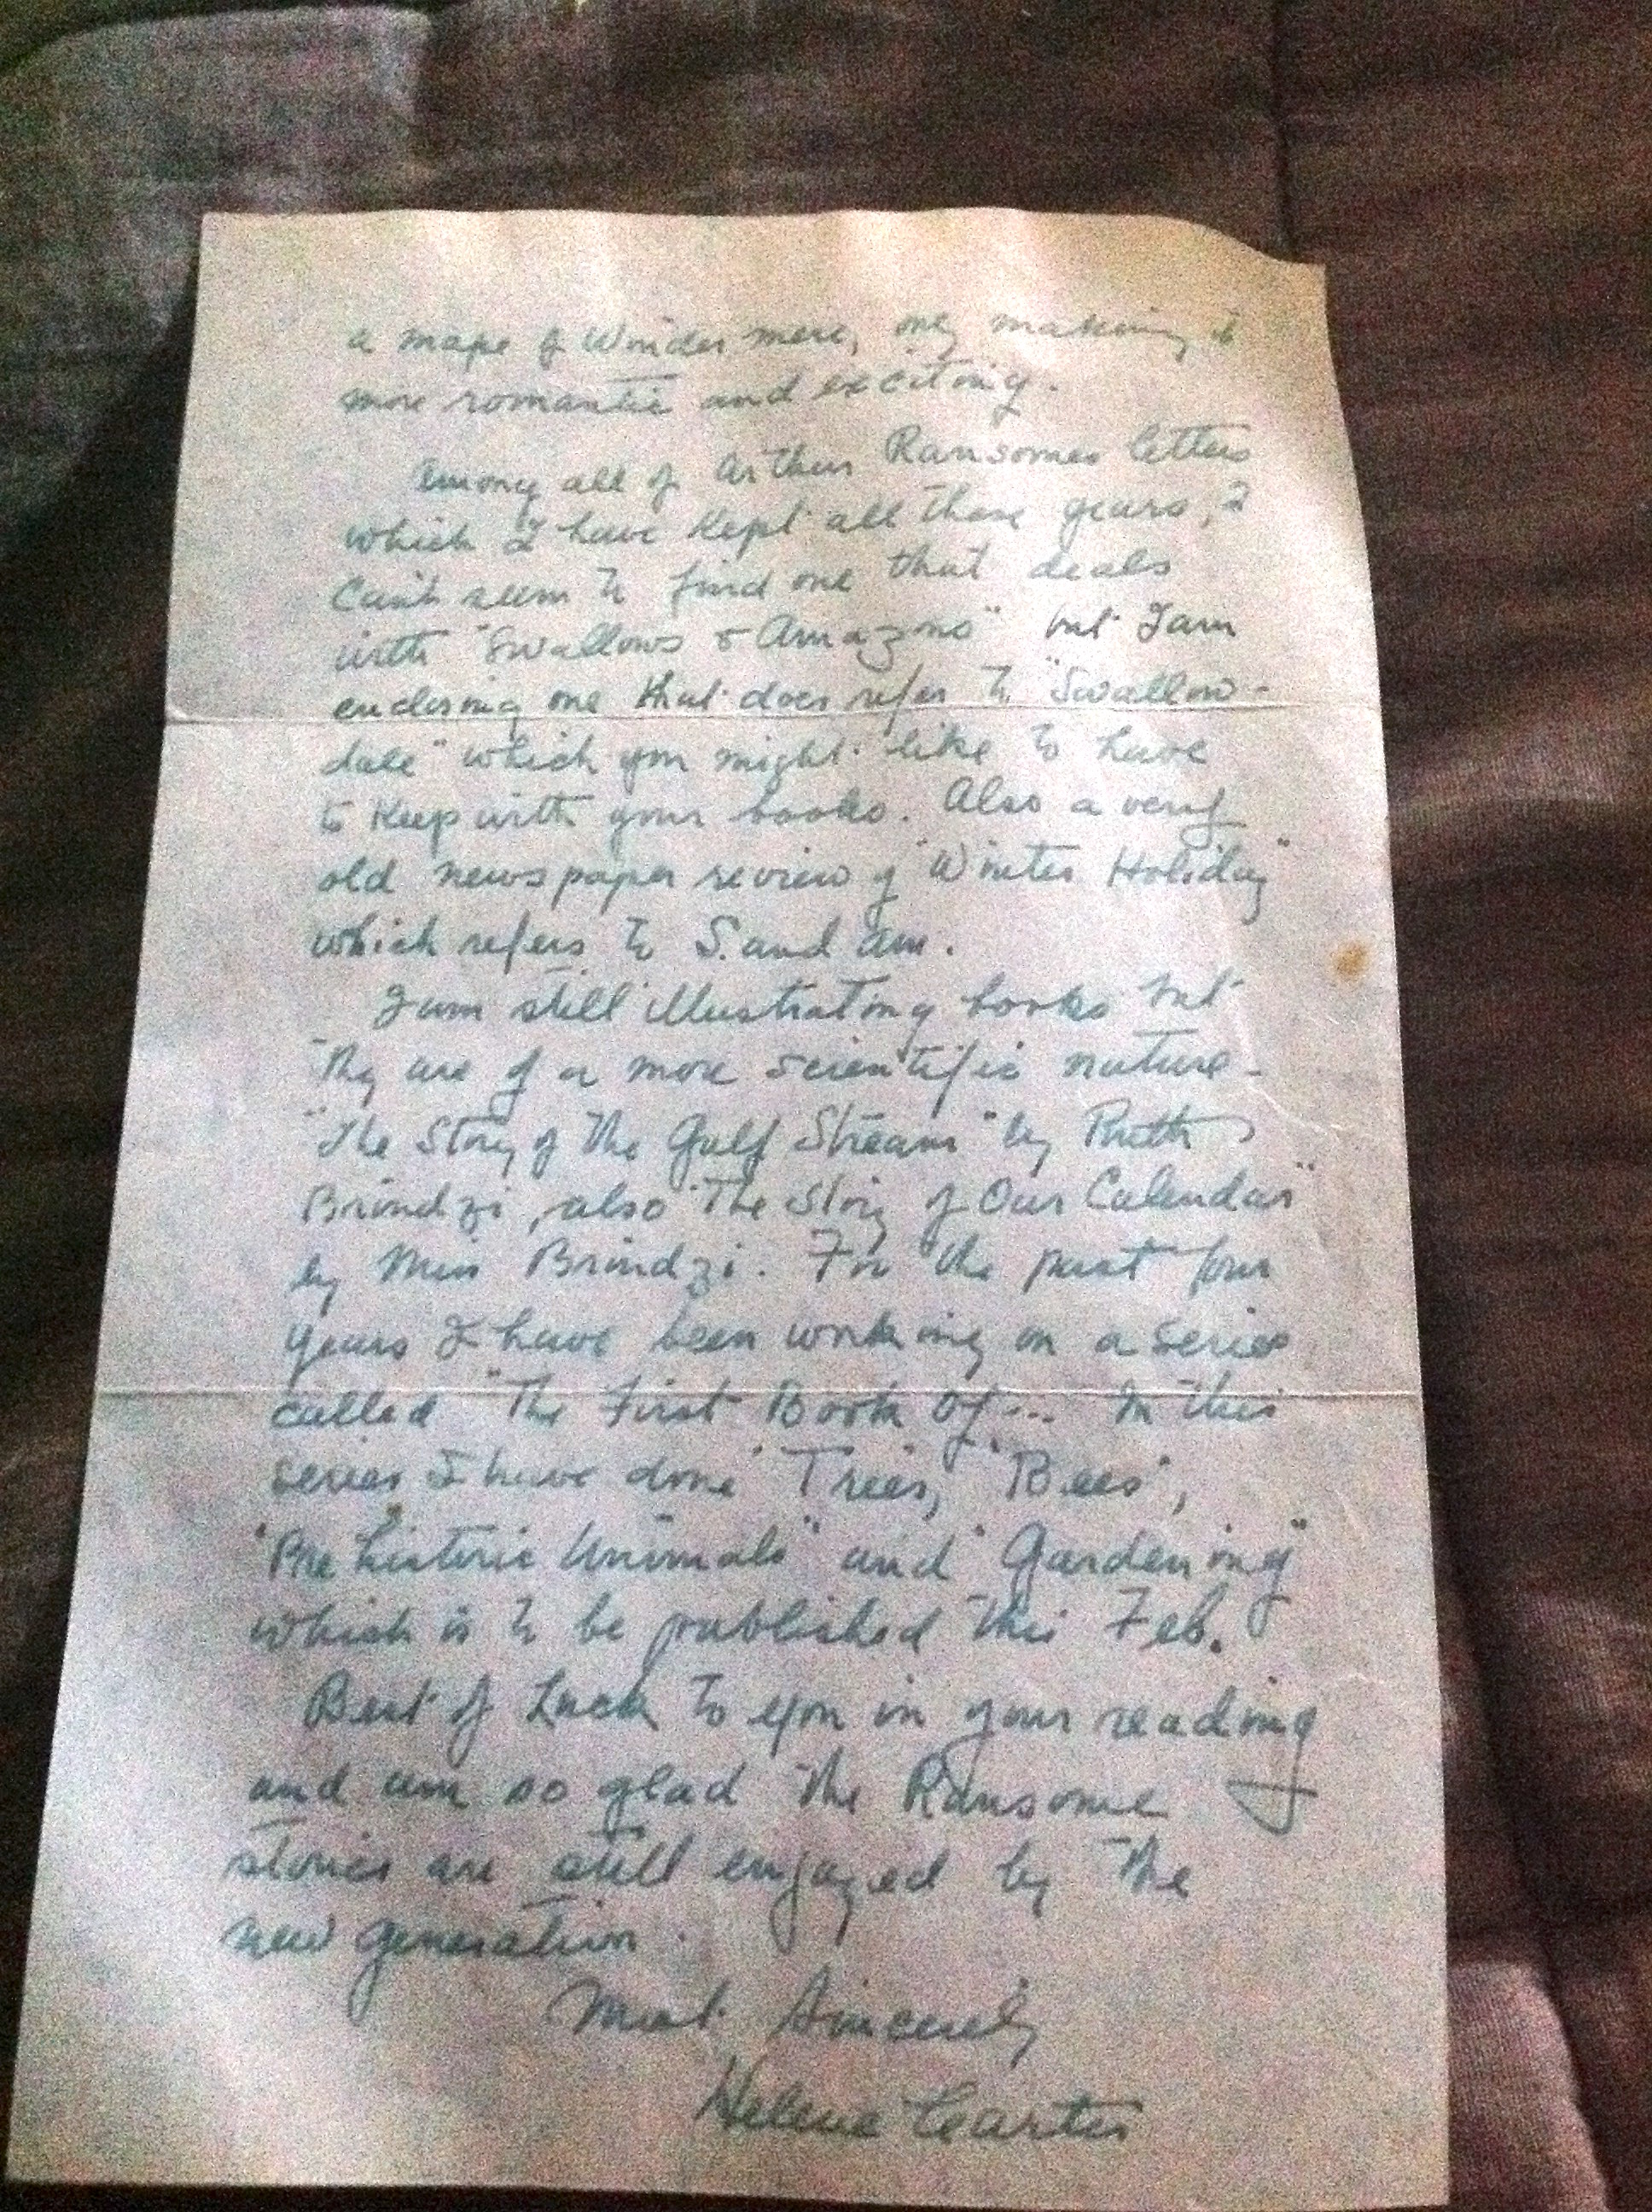 a mape of Windermere, only making it
more romantic and exciting.
Among all of Arthur Ransomes letters
which I have kept all these years, I
can't seem to find one that deals
with "Swallows & Amazons" but I am
enclosing one that does refer to "Swallow-
dale" which you might like to have
to keep with your books. Also a very
old newspaper review of "Winter Holiday"
which refers to S. and Am.
I am still illustrating books but
they are of a more scientific nature-
"The Story of the Gulf Stream" by Ruth
Brindzi, also "The Story of Our Calendar"
by Miss Brindzi. For the past four
years I have been working on a series
called "The First Book of... In this
series I have done "Trees," "Bees",
"Prehistoric Animals" and "Gardening"
which is to be published this Feb.
Best of Luck to you in your reading
and am so glad the Ransome
stories are still enjoyed by the
new generation.
Most Sincerely
Helene Carter